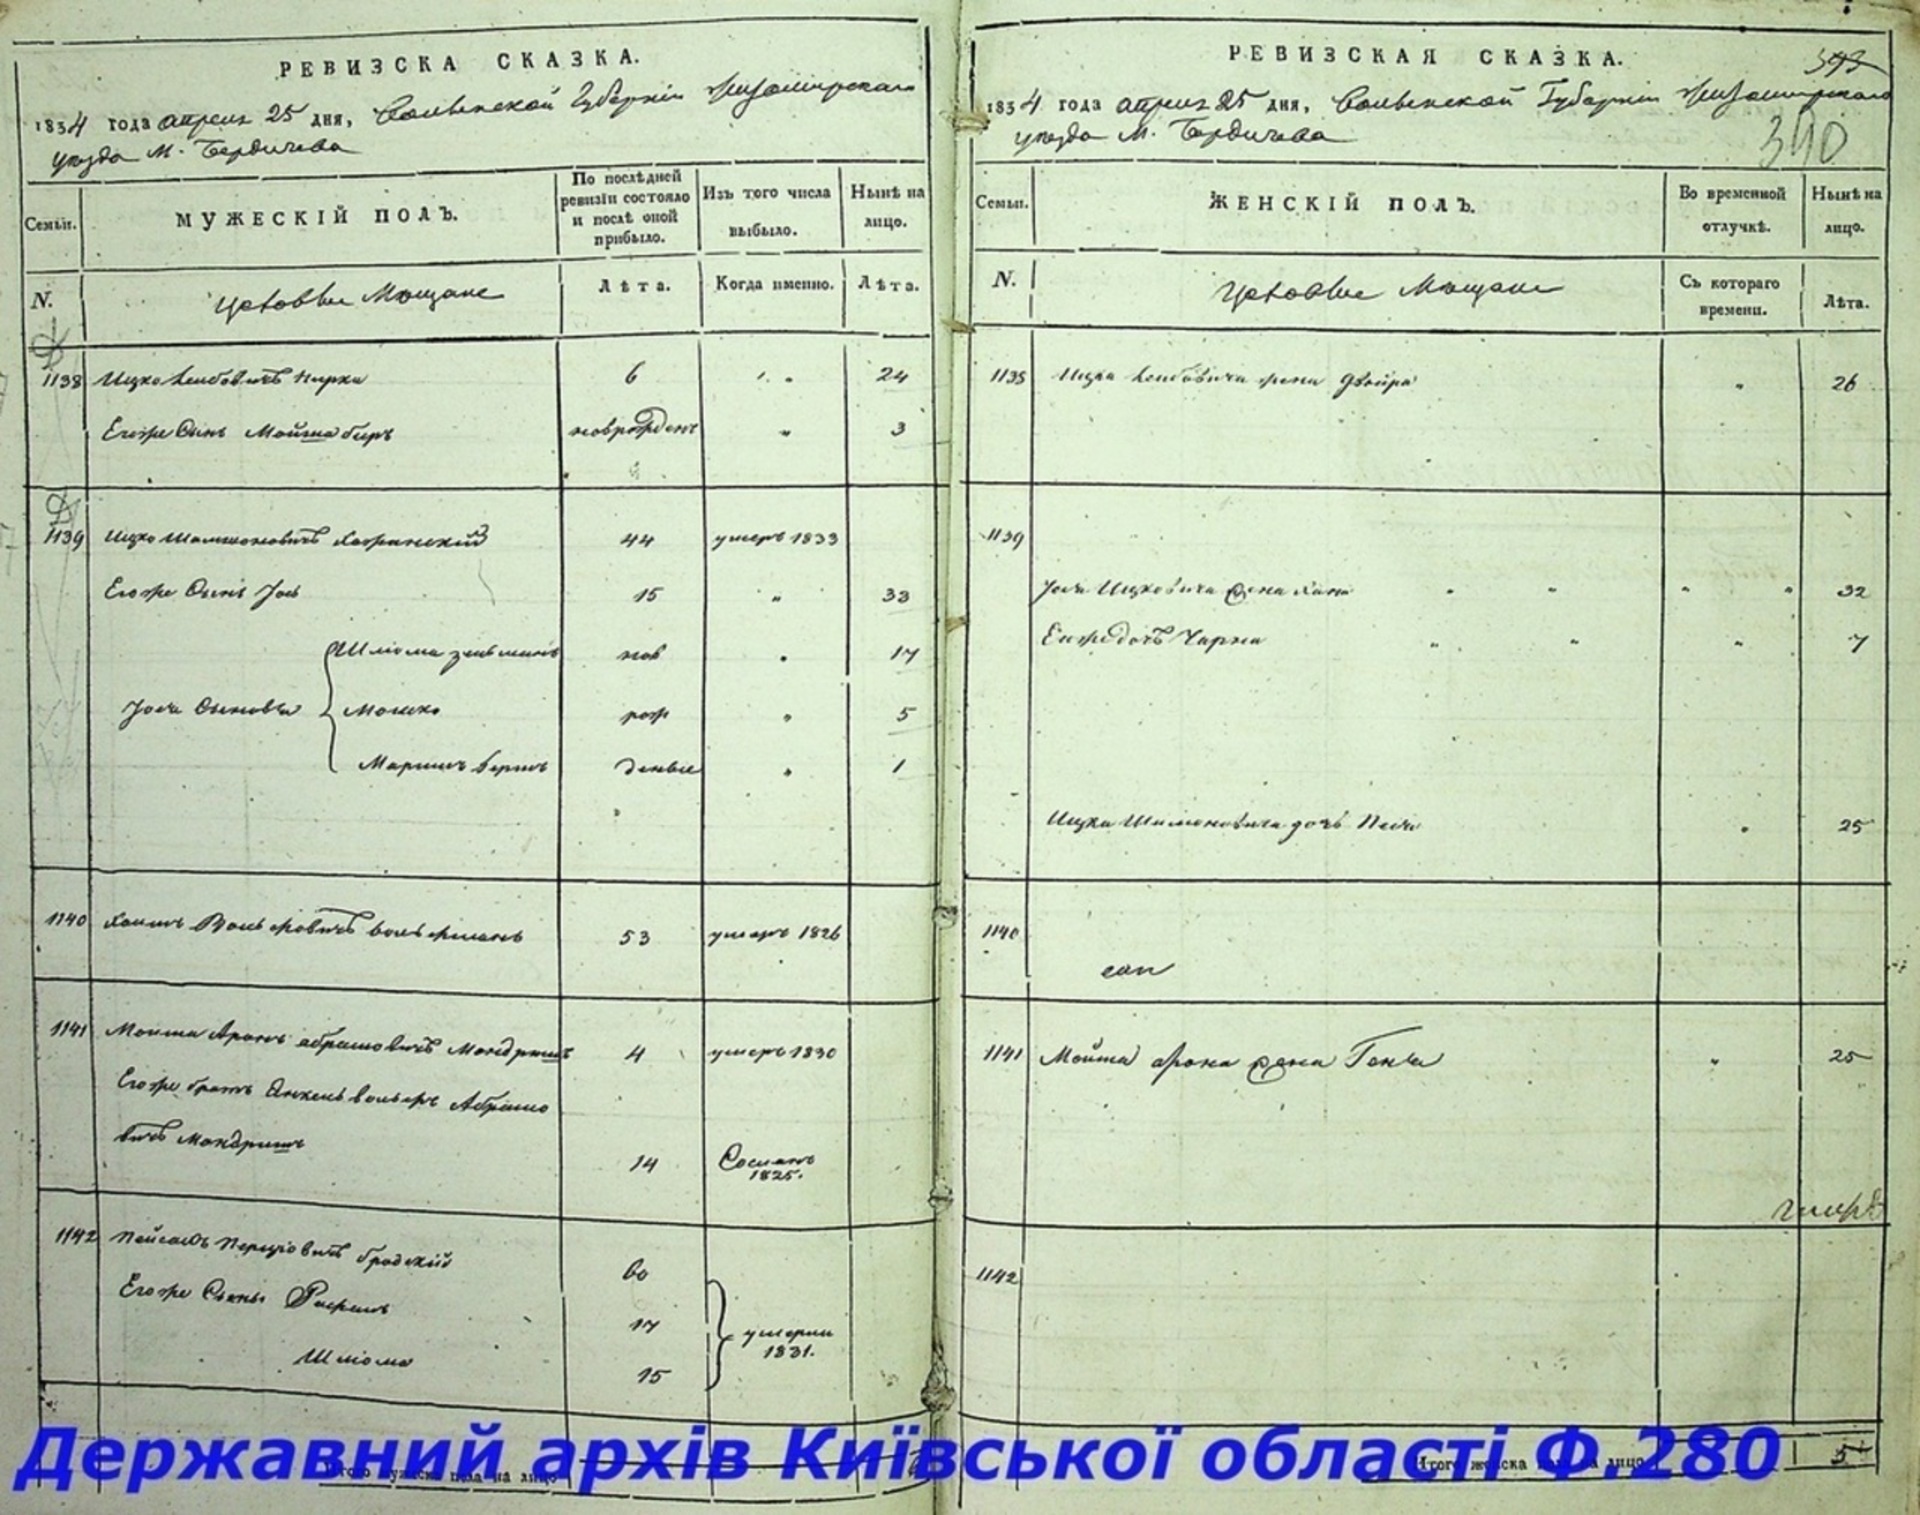 РЕВИЗСКА СКАЗКА.
1834 года апреля 25 дня, Волынской Губернии Житомирскаго
уезда М. Бердичева
Семьи.
МУЖЕСКІЙ ПОЛЪ.
По послѣдней ревизіи состояло и послѣ оной прибыло.
Изъ того числа выбыло.
Нынѣ на лицо.
N.
Мещане
Лѣта.
Когда именно.
Лѣта.
1138 Ицко Лейбовичъ 6 24
Егоже Сынъ Мойша беръ новрожденъ 3
1139 Ицко Шамшоновичъ 44 умеръ 1833
Егоже Сынъ Іось 15 33
Шліома зельманъ нов 17
Іося Сыновья Мошко рож 5
берко денные 1
1140 Хаимъ Вольфовичъ вольфманъ 53 умеръ 1826
1141 Мойша Аронъ абрамовичъ Мондришъ 4 умеръ 1830
Егоже братъ Янкель вольфъ Абрамо
вичъ Мондришъ 14 1825.
1142 Пейсахъ бродскій 60
Егоже Сыны 17 умерли
1831.
Шліома 15
РЕВИЗСКАЯ СКАЗКА.
393
1834 года апреля 25 дня, Волынской Губерніи Житомирскаго
уезда М. Бердичева
390
Семьи.
ЖЕНСКІЙ ПОЛЪ.
Во временной отлучкѣ.
Нынѣ на лицо.
N.
Мещане
Съ котораго времени.
Лѣта.
1138 Ицка Лейбовича жена Двойра 26
1139
Іося Ицковича жена Хана 32
Еяже дочь Чарна 7
Ицка Шимоновича дочь Песя 25
1140
1141 Мойша Арона жена Геня 25
1142
Итого мужеска пола на лицо
Итого женска пола на лицо 5
Державний архів Київської області Ф.280